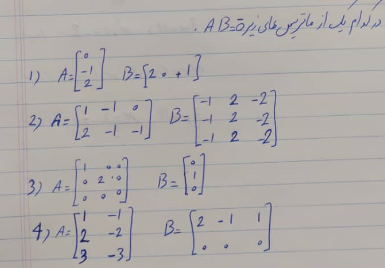 در کدام یک از ماتریس های زیر AB=0̄.
1) A=[0 -1 2] B=[2 0 +1]
2) A=[1 -1 0
2 -1 -1] B=[-1 2 -2
-1 2 -2
-1 2 -2]
3) A=[1 0 0
0 2 0
0 0 0] B=[0
1
0]
4) A=[1 -1
2 -2
3 -3] B=[2 -1 1
0 0 0]